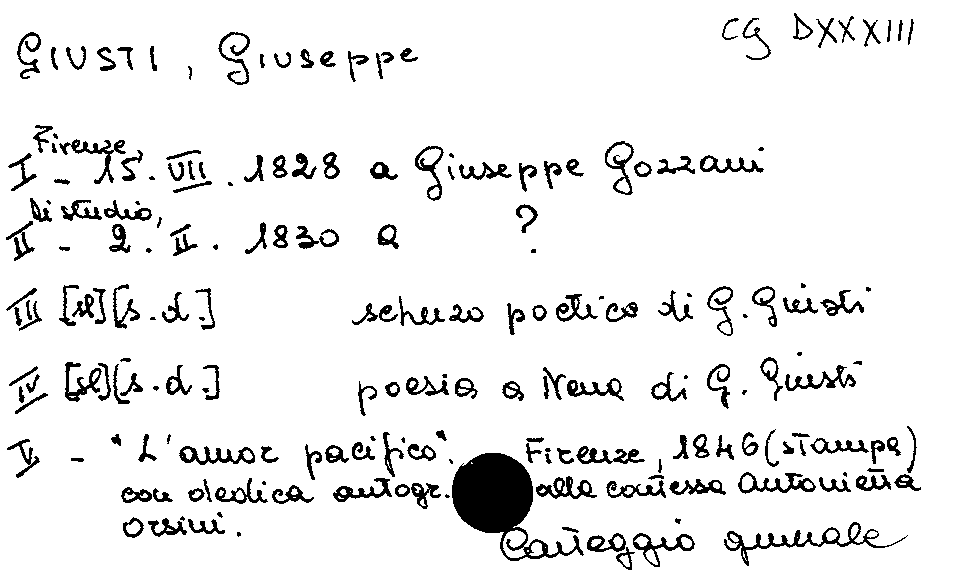 CG DXXXIII
GIUSTI, Giuseppe
Firenze,
I - 15.VII.1828 a Giuseppe Gozzani
Di studio,
II - 2.II.1830 a ?
III [sl][s.d.] scherzo poetico di G. Giusti
IV [sl][s.d.] poesia a Nena di G. Giusti
V - "L'amor pacifico". Firenze, 1846 (stampa)
con dedica autogr. alla contessa Antonietta
Orsini.
Carteggio generale